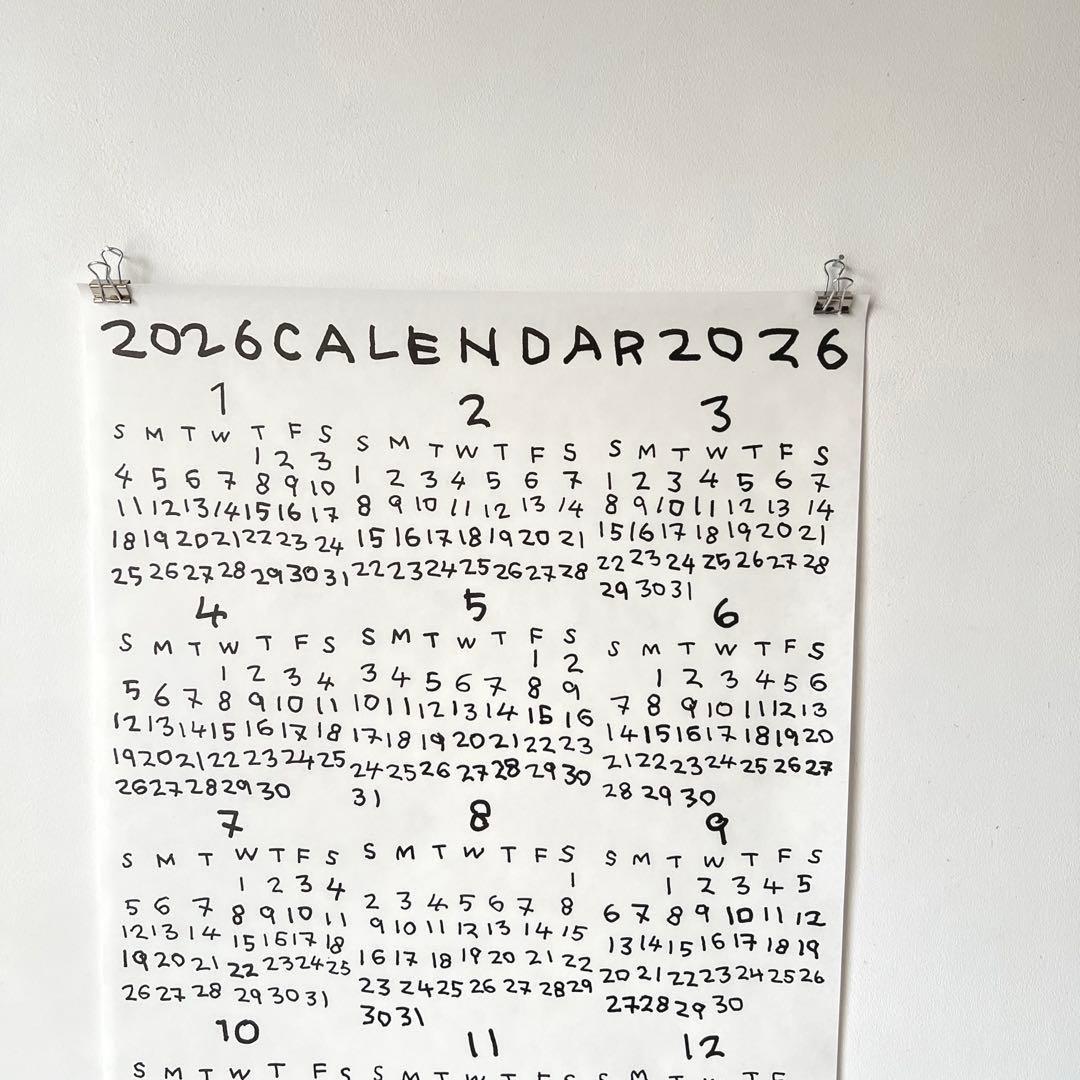 2026 CALENDAR 2026
1
S M T W T F S
1 2 3
4 5 6 7 8 9 10
11 12 13 14 15 16 17
18 19 20 21 22 23 24
25 26 27 28 29 30 31
2
S M T W T F S
1 2 3 4 5 6 7
8 9 10 11 12 13 14
15 16 17 18 19 20 21
22 23 24 25 26 27 28
3
S M T W T F S
1 2 3 4 5 6 7
8 9 10 11 12 13 14
15 16 17 18 19 20 21
22 23 24 25 26 27 28
29 30 31
4
S M T W T F S
1 2 3 4
5 6 7 8 9 10 11
12 13 14 15 16 17 18
19 20 21 22 23 24 25
26 27 28 29 30
5
S M T W T F S
1 2
3 4 5 6 7 8 9
10 11 12 13 14 15 16
17 18 19 20 21 22 23
24 25 26 27 28 29 30
31
6
S M T W T F S
1 2 3 4 5 6
7 8 9 10 11 12 13
14 15 16 17 18 19 20
21 22 23 24 25 26 27
28 29 30
7
S M T W T F S
1 2 3 4
5 6 7 8 9 10 11
12 13 14 15 16 17 18
19 20 21 22 23 24 25
26 27 28 29 30 31
8
S M T W T F S
1
2 3 4 5 6 7 8
9 10 11 12 13 14 15
16 17 18 19 20 21 22
23 24 25 26 27 28 29
30 31
9
S M T W T F S
1 2 3 4 5
6 7 8 9 10 11 12
13 14 15 16 17 18 19
20 21 22 23 24 25 26
27 28 29 30
10
S M T W T F S
11
S M T W T F S
12
S M T W T F